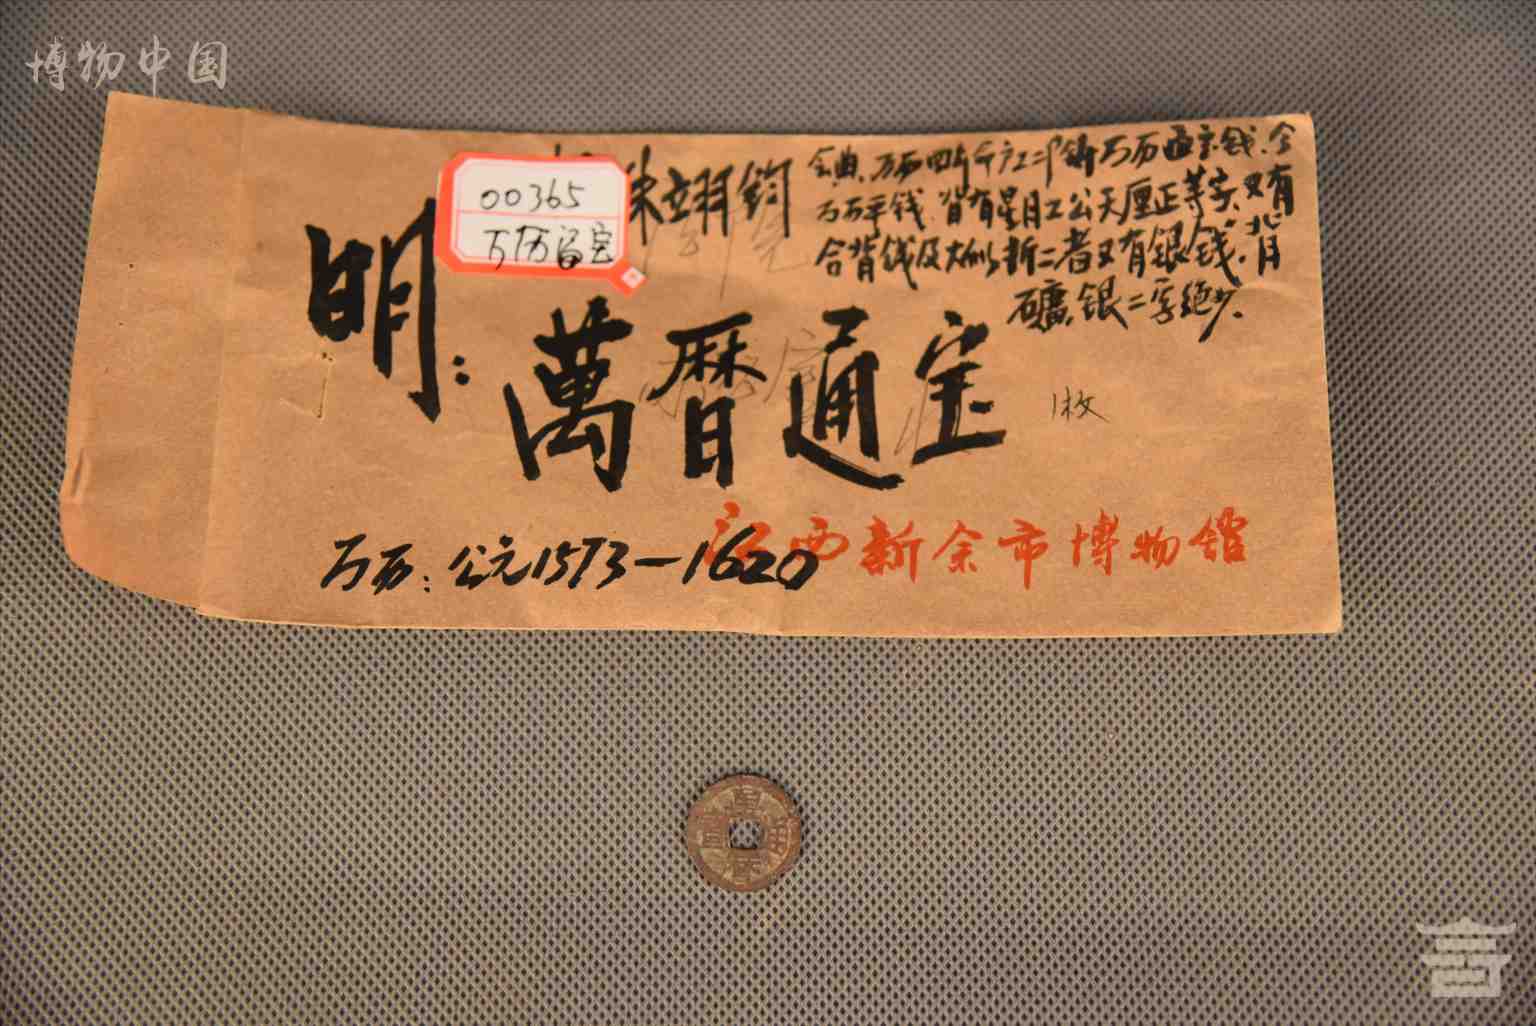 博物中国
00365
万历通宝
朱翊钧
会典,万历四年令广工部铸万历通宝钱,金
万历平钱,背有星月工公天厘正等字,又有
合背钱及大似折二者又有银钱,背
矿银二字绝少.
明:
萬曆通宝
1枚
万历:公元1573—1620
江西新余市博物馆